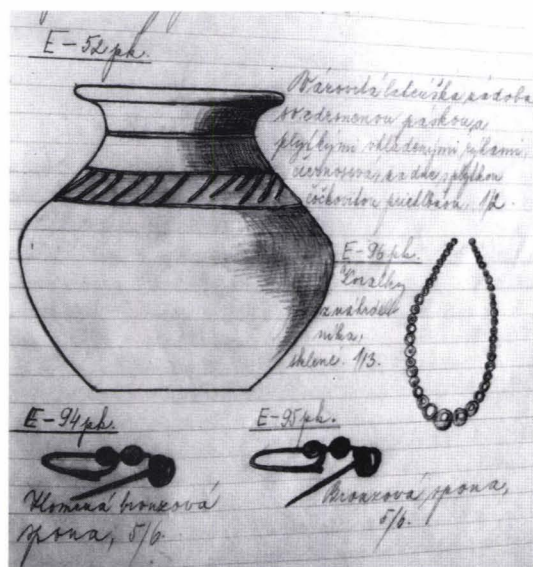 E-52pk.
Vázovitá laténska nádoba
so zdrsnenou páskou, a
plytkými vhladenými rytami,
na dne s plytkou
šočkovitou priehlbňou. 1/2.
E-96pk.
Koralky
z náhrdel
níka,
sklené. 1/3.
E-94pk.
Zlomená bronzová
spona, 5/6.
E-95pk.
Bronzová spona,
5/6.